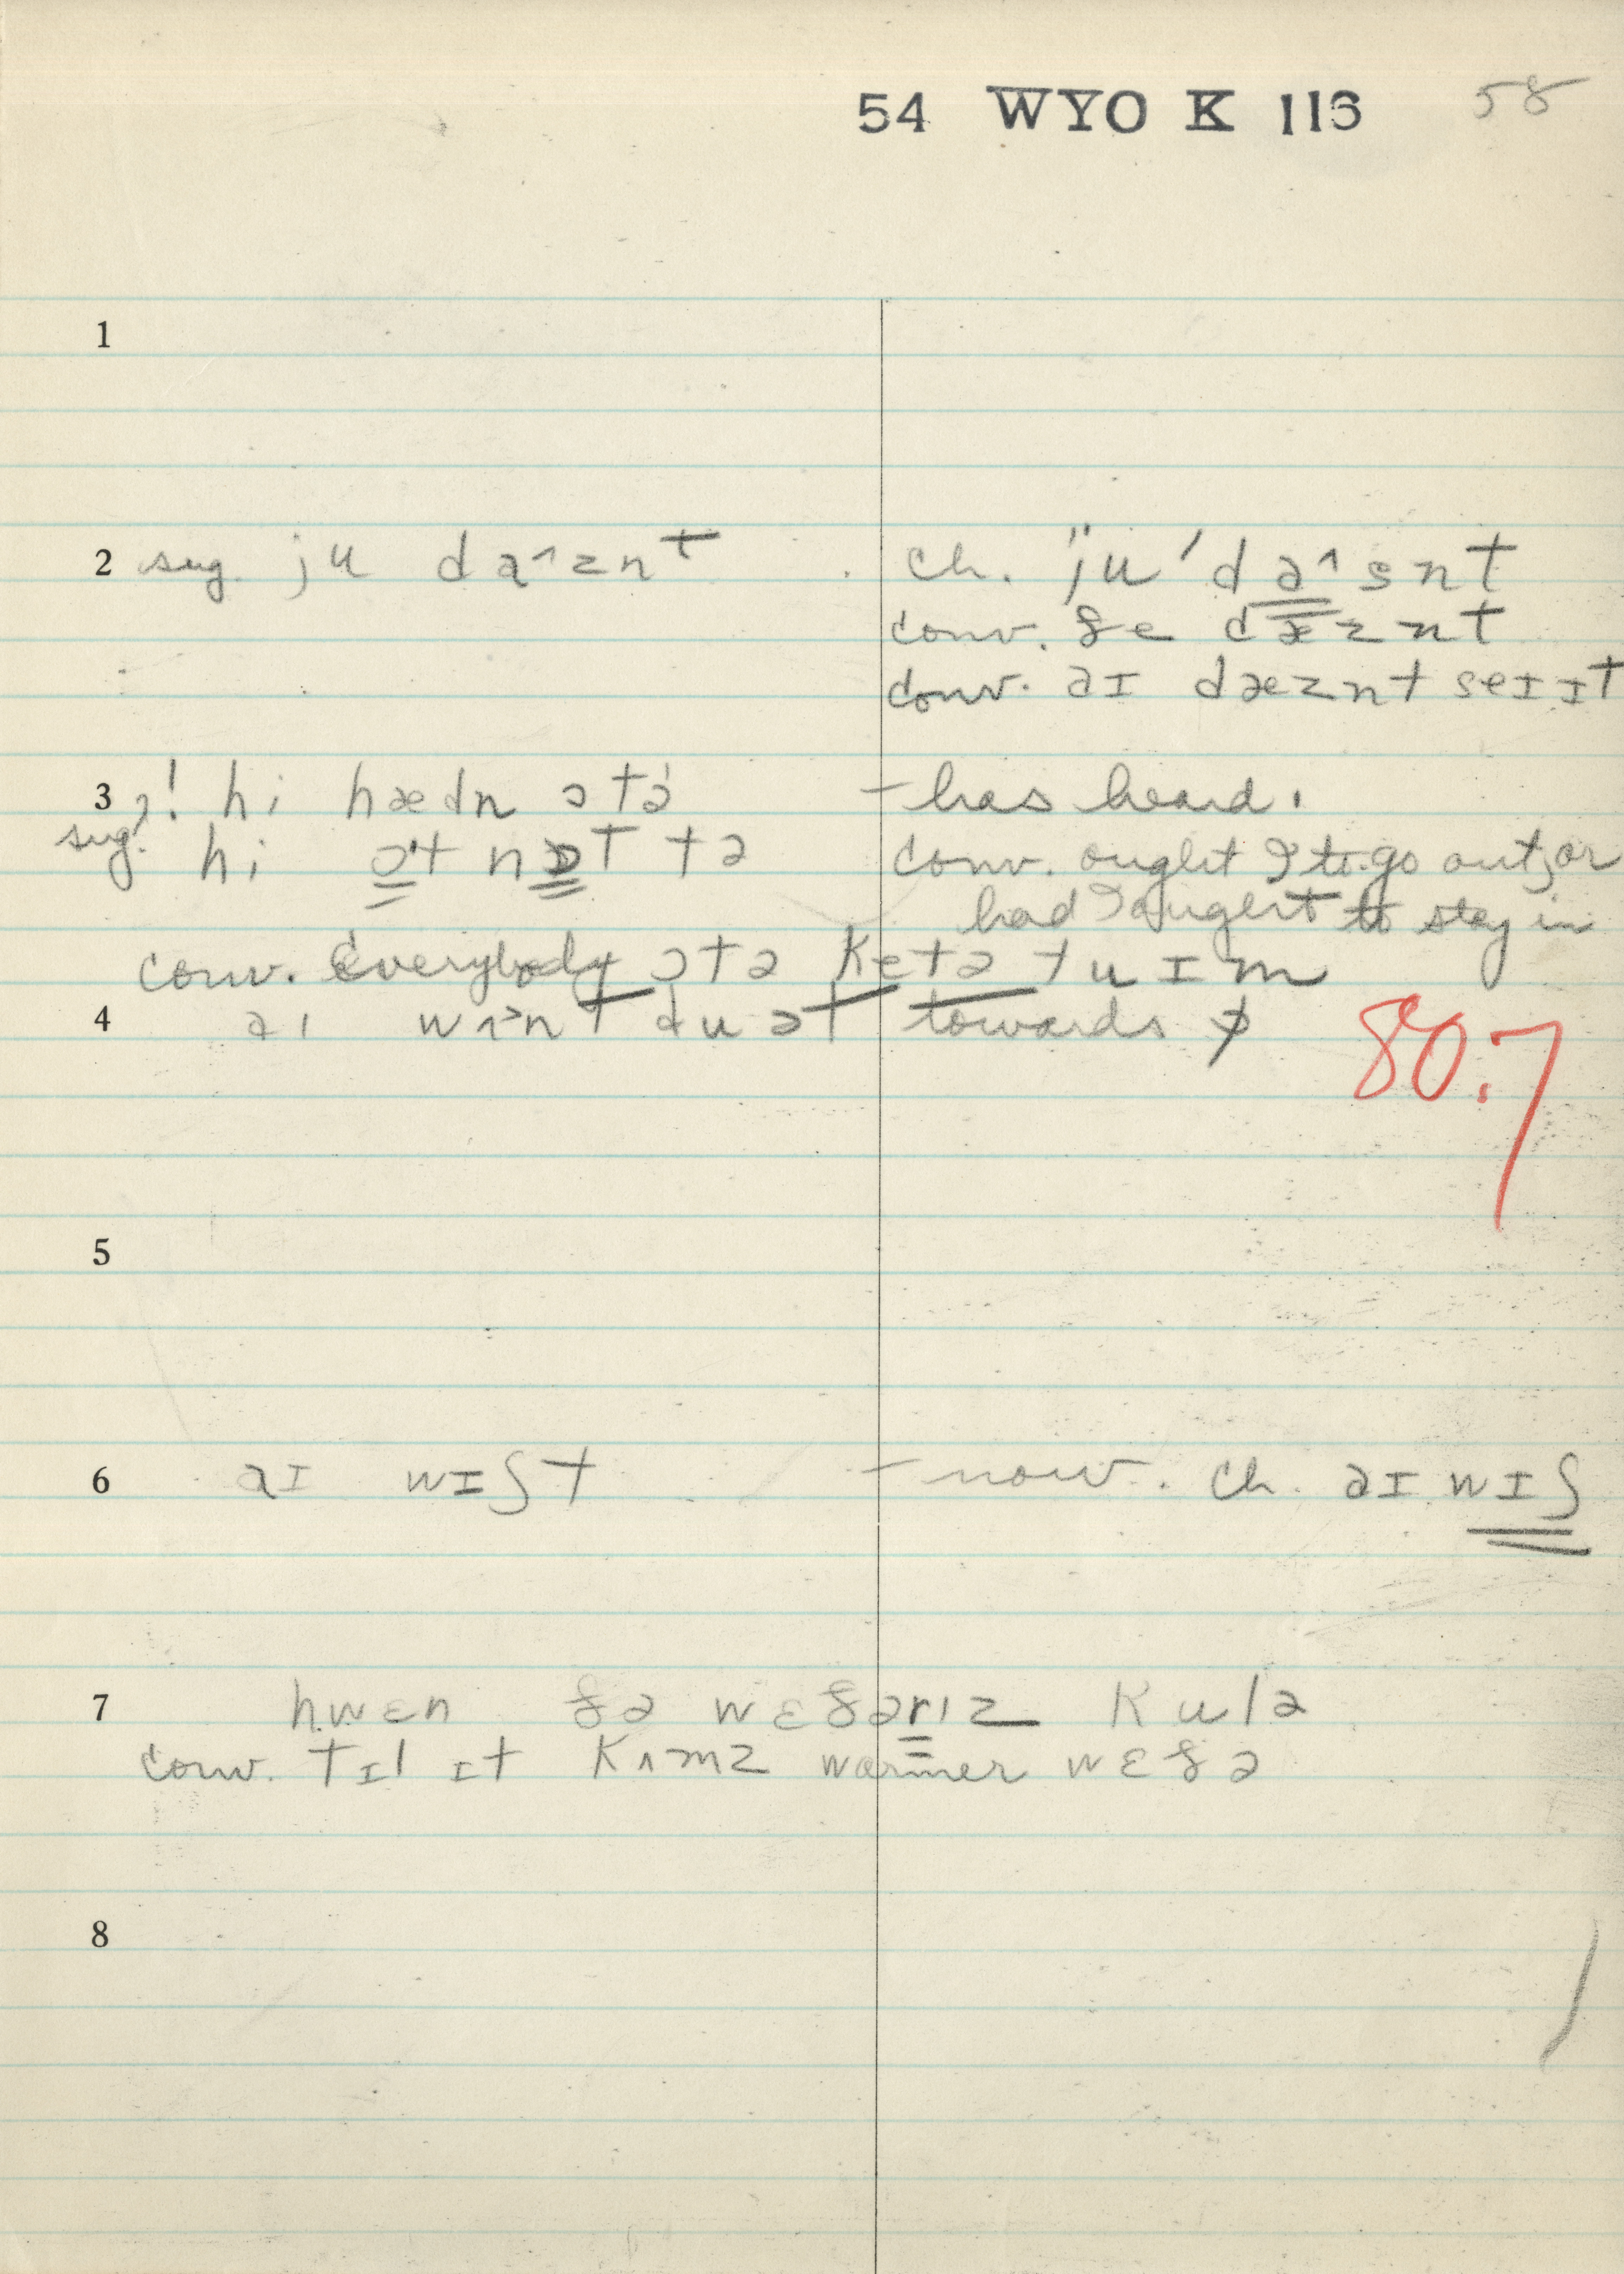 54 WYO K 116 58
1
2 sug. ju daˆznt ch. ju ' dəˆsnt
conv. ðe dæznt
conv. aɪ dæznt seɪ ɪt
3 ?! hi hædn ɔtə — has heard.
sug. hi ɔt nɒt tə conv. ought I to go out, or
had I ought to stay in
conv. Everybody ɔtə ketə tu ɪm
4 aɪ wʌnt du ɔt towards
80.7
5
6 aɪ wɪʃt — now. ch. aɪ wɪʃ
7 hwɛn ðə wɛðərɪz kulə
conv. tɪl ɪt kʌmz warmer wɛðə
8